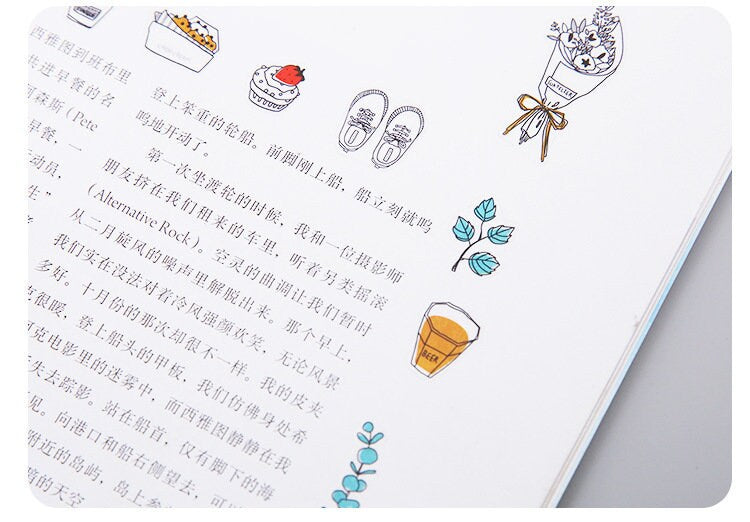 西雅图到班布里
共进早餐的名
阿森斯（Pete
早餐，一
动员，
生”
登上笨重的轮船。前脚刚上船，船立刻就呜
呜地开动了。
第一次坐渡轮的时候，我和一位摄影师
朋友挤在我们租来的车里，听着另类摇滚
（Alternative Rock）。空灵的曲调让我们暂时
从二月旋风的噪声里解脱出来。那个早上，
我们实在没法对着冷风强颜欢笑，无论风景
多好。十月份的那次却很不一样。我的皮夹
克很暖，登上船头的甲板，我们仿佛身处希
克电影里的迷雾中，而西雅图静静在我
失去踪影。站在船首，仅有脚下的海
见。向港口和船右侧望去，可
附近的岛屿，岛上参
的天空
BEER